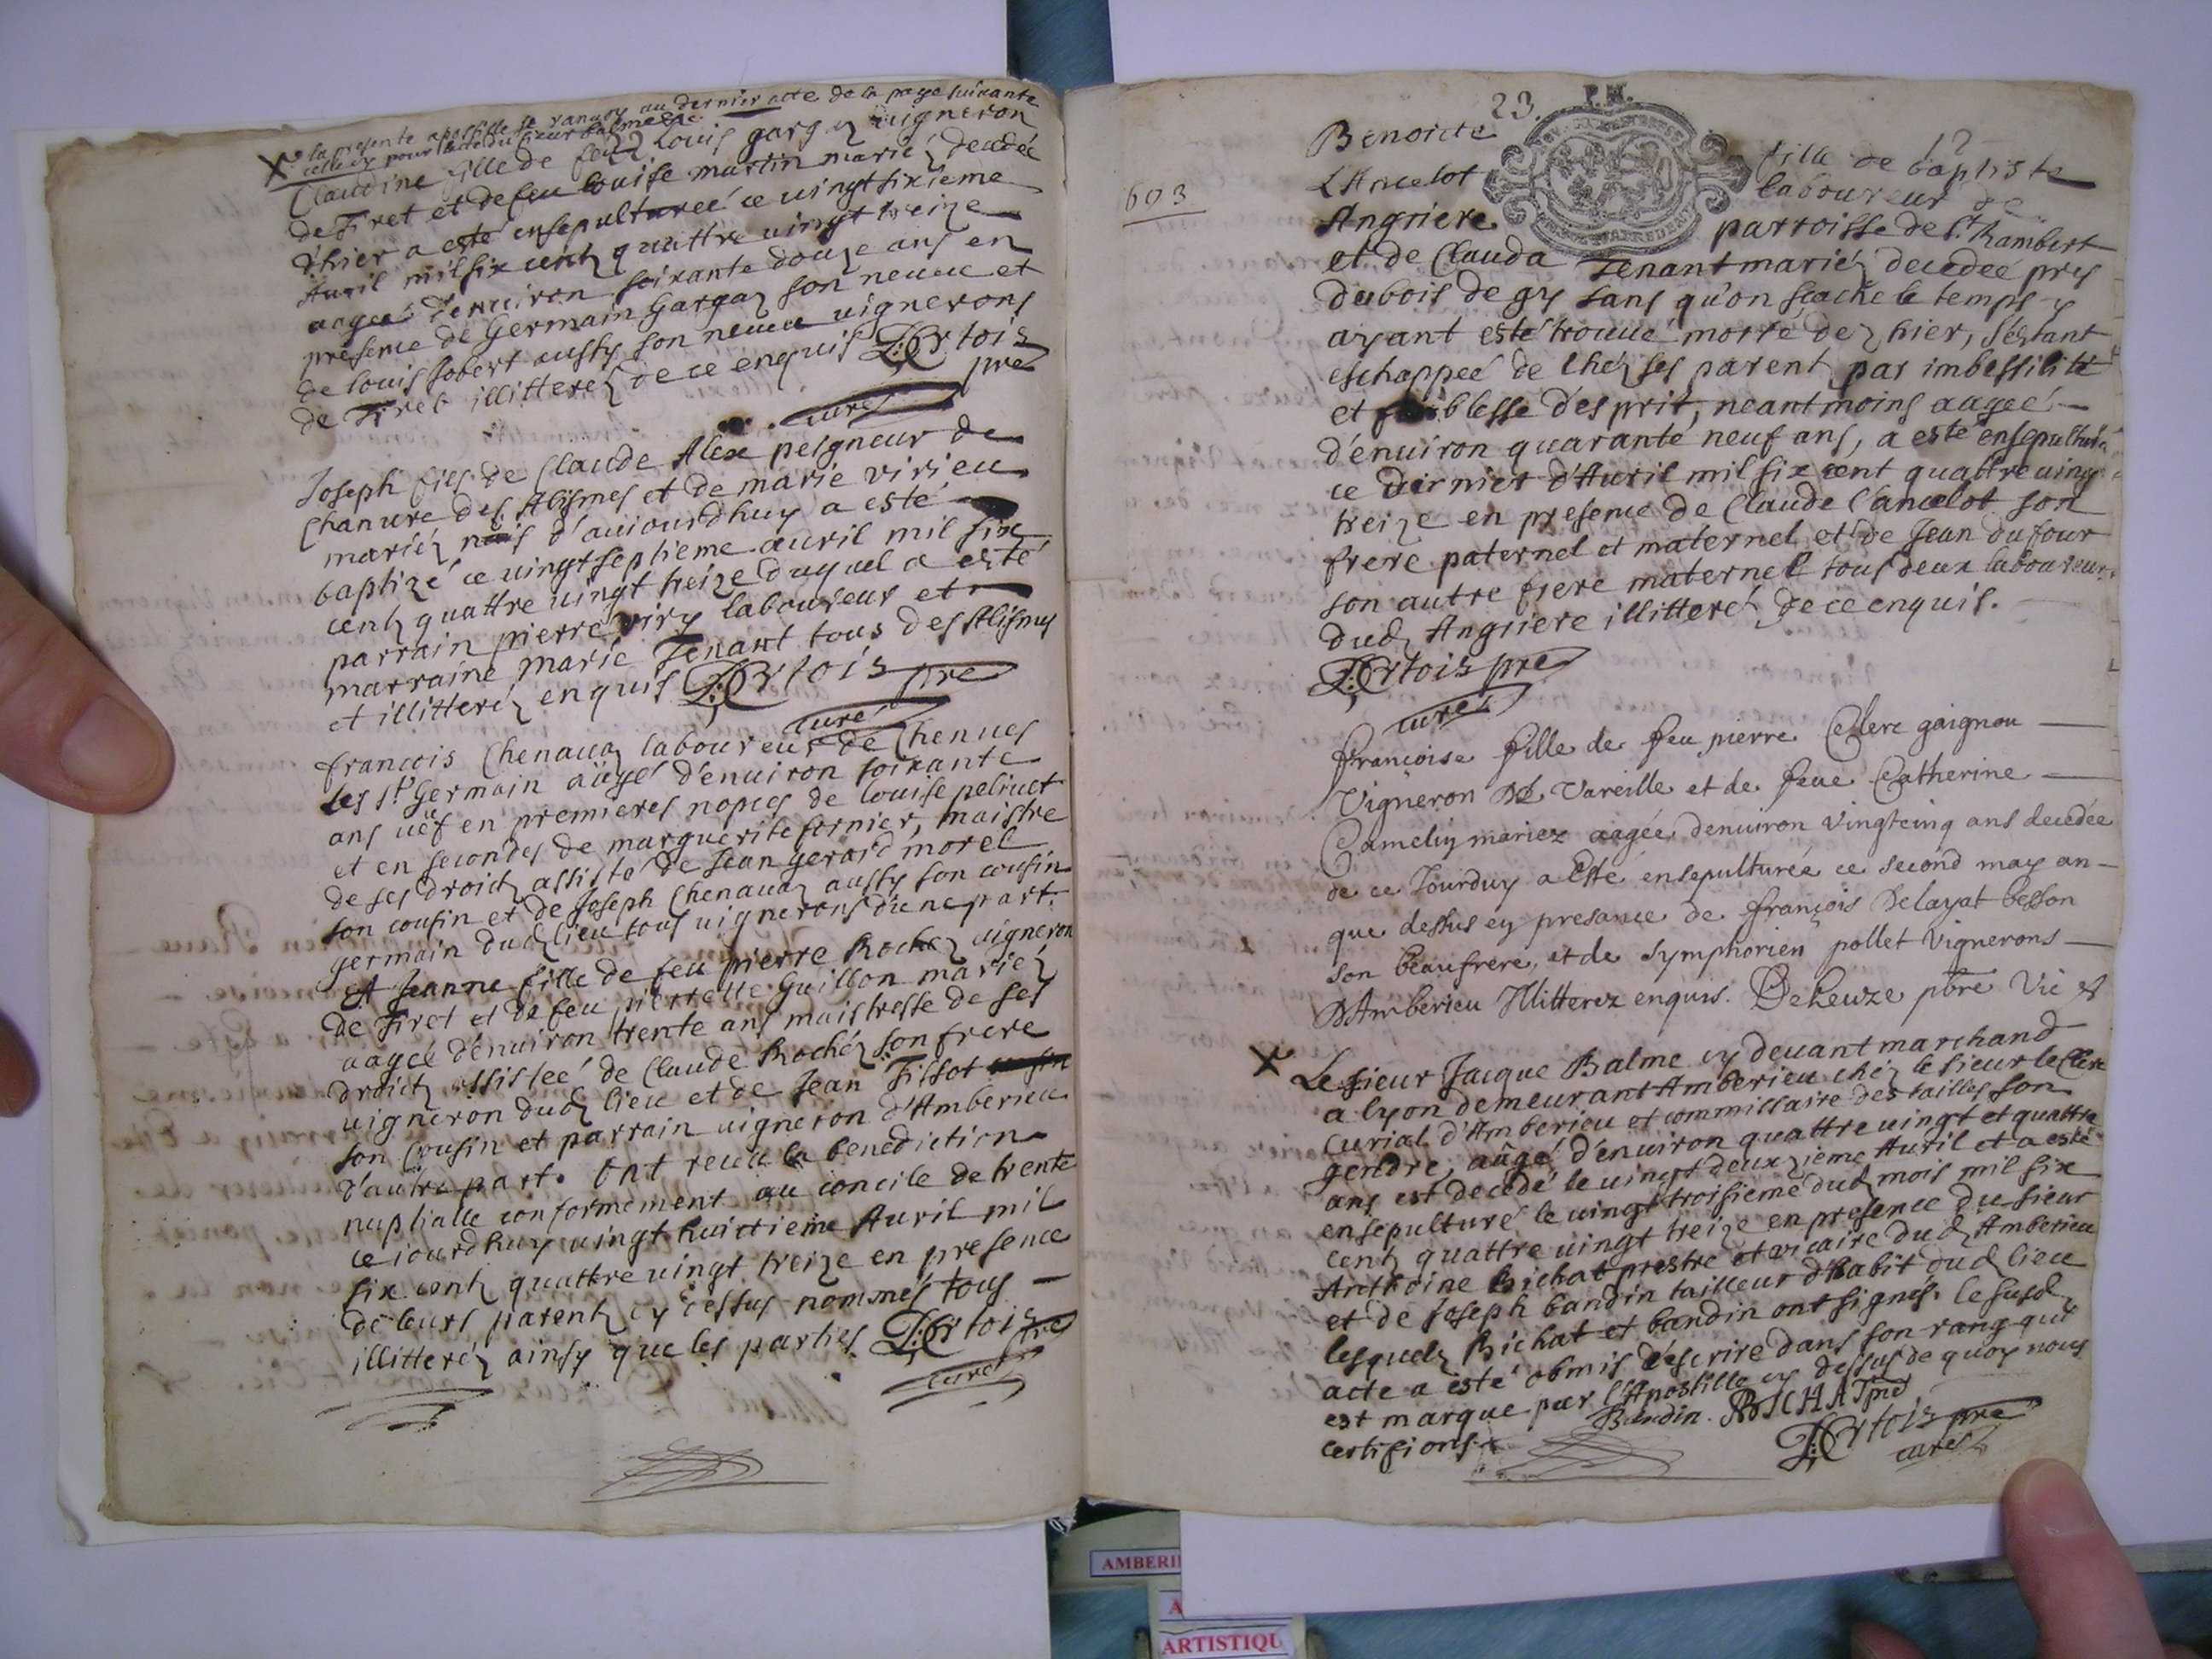 X la presente apostille se rangera au dernier acte de la page suivante
celle cy pour l'acte du sieur balme &c
Claudine fille de feu Louis gargaz uigneron
de Tiret et de feu louise martin mariéz decedée
d'hier a esté ensepultureé ce uingt sixieme
Auril mil six centz quattre uingt treize
aagée d'enuiron soixante douze ans en
presence de Germain Gargaz son neueu et
de louis Jobert aussy son neueu uignerons
de Tiret illitterez de ce enquis D: Ortois
pre
curé
Joseph fils de Claude Alex peigneur de
Chanure des Allymes et de marie virieu
mariéz nais d'auiourdhuy a esté
baptizé ce uingtseptieme auril mil six
centz quattre uingt treize duquel a esté
parrain pierre viry laboureur et
marraine marie Tenant tous des Allymes
et illitteréz enquis D: Ortois pre
curé
francois Chenauaz laboureur de Chennes
les st Germain aagé d'enuiron soixante
ans uëf en premieres nopces de louise peliuet
et en secondes de marguerite fornier, maistre
de ses droictz assisté de Jean Gerard morel
son cousin et de Joseph Chenauaz aussy son cousin
germain dudz lieu tous uignerons d'une part.
Et Jeanne fille de feu pierre Rochez uigneron
de Tiret et de feu pierrette Guillon mariéz
aagée d'enuiron trente ans maistresse de ses
droictz assisteé de Claude Rochéz son frere
uigneron dudz lieu et de Jean Tissot
son Cousin et parrain uigneron d'Amberieu
d'autre part. Ont receu la benediction
nuptialle conformement au concile de trente
ce iourdhuy uingt huictieme Auril mil
six centz quattre uingt treize en presence
de leurs parentz cy dessus nommés tous
illitteréz ainsy que les parties D: Ortois pre
curé
23.
P. M.
12
603
Benoicte fille de baptiste
Lancelot laboureur de
Angriere parroisse de st Rambert
et de Clauda Tenant mariéz decedeé prez
du bois de gy sans qu'on scache le temps y
ayant esté trouué morte dez hier, s'estant
eschappeé de chéz ses parentz par imbessilité
et foiblesse d'esprit, neantmoins aageé
d'enuiron quarante neuf ans, a esté ensepulturée
ce dernier d'Auril mil six cent quattre uingt
treize en presence de Claude Lancelot son
frere paternel et maternel et de Jean dufour
son autre frere maternel tous deux laboureurs
dudz Angriere illitteréz de ce enquis.
D: Ortois pre
curé
françoise fille de feu pierre Clerc gaignou
Vigneron de Vareille et de feue Catherine
Cameliy mariez aagée denuiron vingtcinq ans decedée
de ce Jourduy a Esté ensepulturée ce second may an
que dessus en presance de françois Delayat besson
son beaufrere, et de Symphorien pollet Vignerons
d'Amberieu Illitterez enquis. Deheuze pbre Vic et
X Le sieur Jacque Balme cy deuant marchand
a lyon demeurant Amberieu chéz le sieur le Clerc
Curial d'Amberieu et commissaire des tailles son
gendre, aagé d'enuiron quattre uingt et quattre
ans est decedé le uingt deuxzieme Auril et a esté
ensepulturé le uingt troisieme dudz mois mil six
centz quattre uingt treize en presence du sieur
Anthoine Bichat prestre et vicaire dudz Amberieu
et de Joseph bandin tailleur d'habit dudz lieu
lesquelz Bichat et bandin ont signés. le susdz
acte a esté obmis d'escrire dans son rang qui
est marque par l'Apostille cy dessus de quoy nous
certifions.
Bandin. BICHAT pre
D: Ortois pre
curé
AMBERI
A
ARTISTIQU